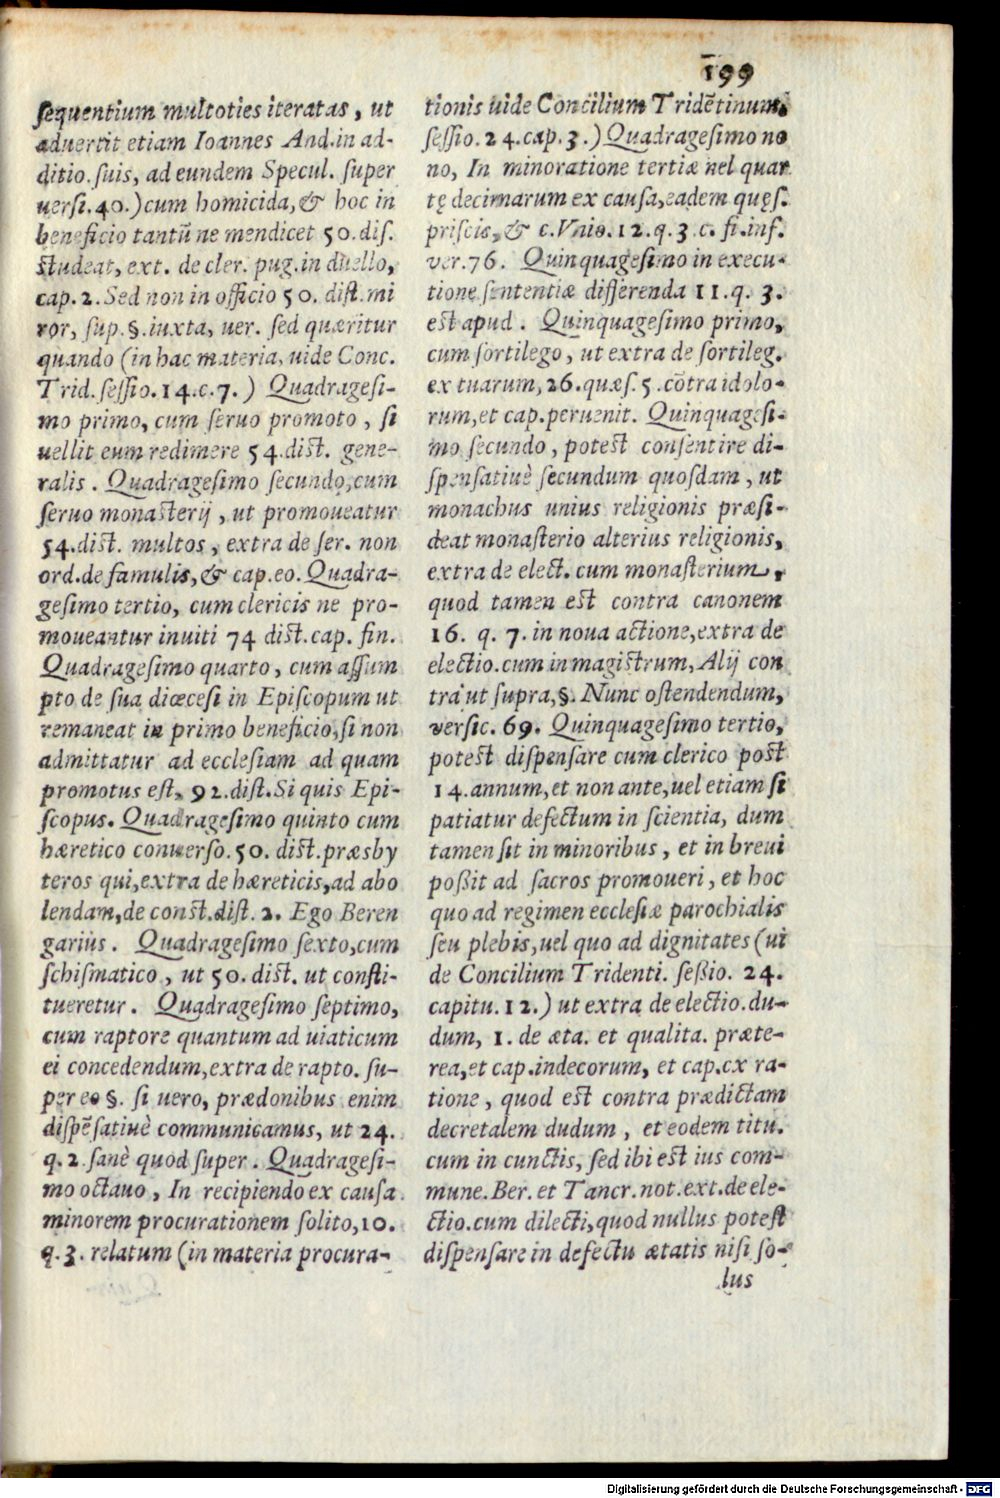 199
sequentium multoties iteratas, ut
aduertit etiam Ioannes And.in ad-
ditio.suis, ad eundem Specul. super
uersi.40.)cum homicida,& hoc in
beneficio tantū ne mendicet 50.dis.
studeat, ext. de cler. pug.in duello,
cap.2.Sed non in officio 50. dist.mi
ror, sup.§.iuxta, uer. sed quæritur
quando (in hac materia, uide Conc.
Trid.sessio.14.c.7.) Quadragesi-
mo primo, cum seruo promoto, si
uellit eum redimere 54.dist. gene-
ralis. Quadragesimo secundo,cum
seruo monasterij, ut promoueatur
54.dist. multos, extra de ser. non
ord.de famulis,& cap.eo. Quadra-
gesimo tertio, cum clericis ne pro-
moueantur inuiti 74 dist.cap. fin.
Quadragesimo quarto, cum assum
pto de sua diœcesi in Episcopum ut
remaneat in primo beneficio,si non
admittatur ad ecclesiam ad quam
promotus est, 92.dist.Si quis Epi-
scopus. Quadragesimo quinto cum
hæretico conuerso.50. dist.præsby
teros qui,extra de hæreticis,ad abo
lendam,de const.dist. 2. Ego Beren
garius. Quadragesimo sexto,cum
schismatico, ut 50.dist. ut consti-
tueretur. Quadragesimo septimo,
cum raptore quantum ad uiaticum
ei concedendum,extra de rapto. su-
per eo §. si uero, prædonibus enim
dispēsatiuè communicamus, ut 24.
q.2.sanè quod super. Quadragesi-
mo octauo, In recipiendo ex causa
minorem procurationem solito,10.
q.3. relatum (in materia procura-
tionis uide Concilium Tridētinum,
sessio.24.cap.3.)Quadragesimo no
no, In minoratione tertiæ uel quar
tę decimarum ex causa,eadem quęs.
priscis,& c.Vnio.12.q.3.c.fi.inf.
ver.76. Quinquagesimo in execu-
tione sententiæ differenda 11.q. 3.
est apud. Quinquagesimo primo,
cum sortilego, ut extra de sortileg.
ex tuarum,26.quæs.5.cōtra idolo-
rum,et cap.peruenit. Quinquagesi-
mo secundo, potest consentire di-
spensatiuè secundum quosdam, ut
monachus unius religionis præsi-
deat monasterio alterius religionis,
extra de elect. cum monasterium,
quod tamen est contra canonem
16. q. 7. in noua actione,extra de
electio.cum in magistrum, Alij con
tra ut supra,§. Nunc ostendendum,
versic. 69. Quinquagesimo tertio,
potest dispensare cum clerico post
14.annum,et non ante,uel etiam si
patiatur defectum in scientia, dum
tamen sit in minoribus, et in breui
poßit ad sacros promoueri, et hoc
quo ad regimen ecclesiæ parochialis
seu plebis,uel quo ad dignitates (ui
de Concilium Tridenti. seßio. 24.
capitu.12.) ut extra de electio.du-
dum, 1. de æta. et qualita. præte-
rea,et cap.indecorum, et cap.ex ra-
tione, quod est contra prædictam
decretalem dudum, et eodem titu.
cum in cunctis, sed ibi est ius com-
mune.Ber. et Tancr.not.ext.de ele-
ctio.cum dilecti,quod nullus potest
dispensare in defectu ætatis nisi so-
lus
Digitalisierung gefördert durch die Deutsche Forschungsgemeinschaft - DFG